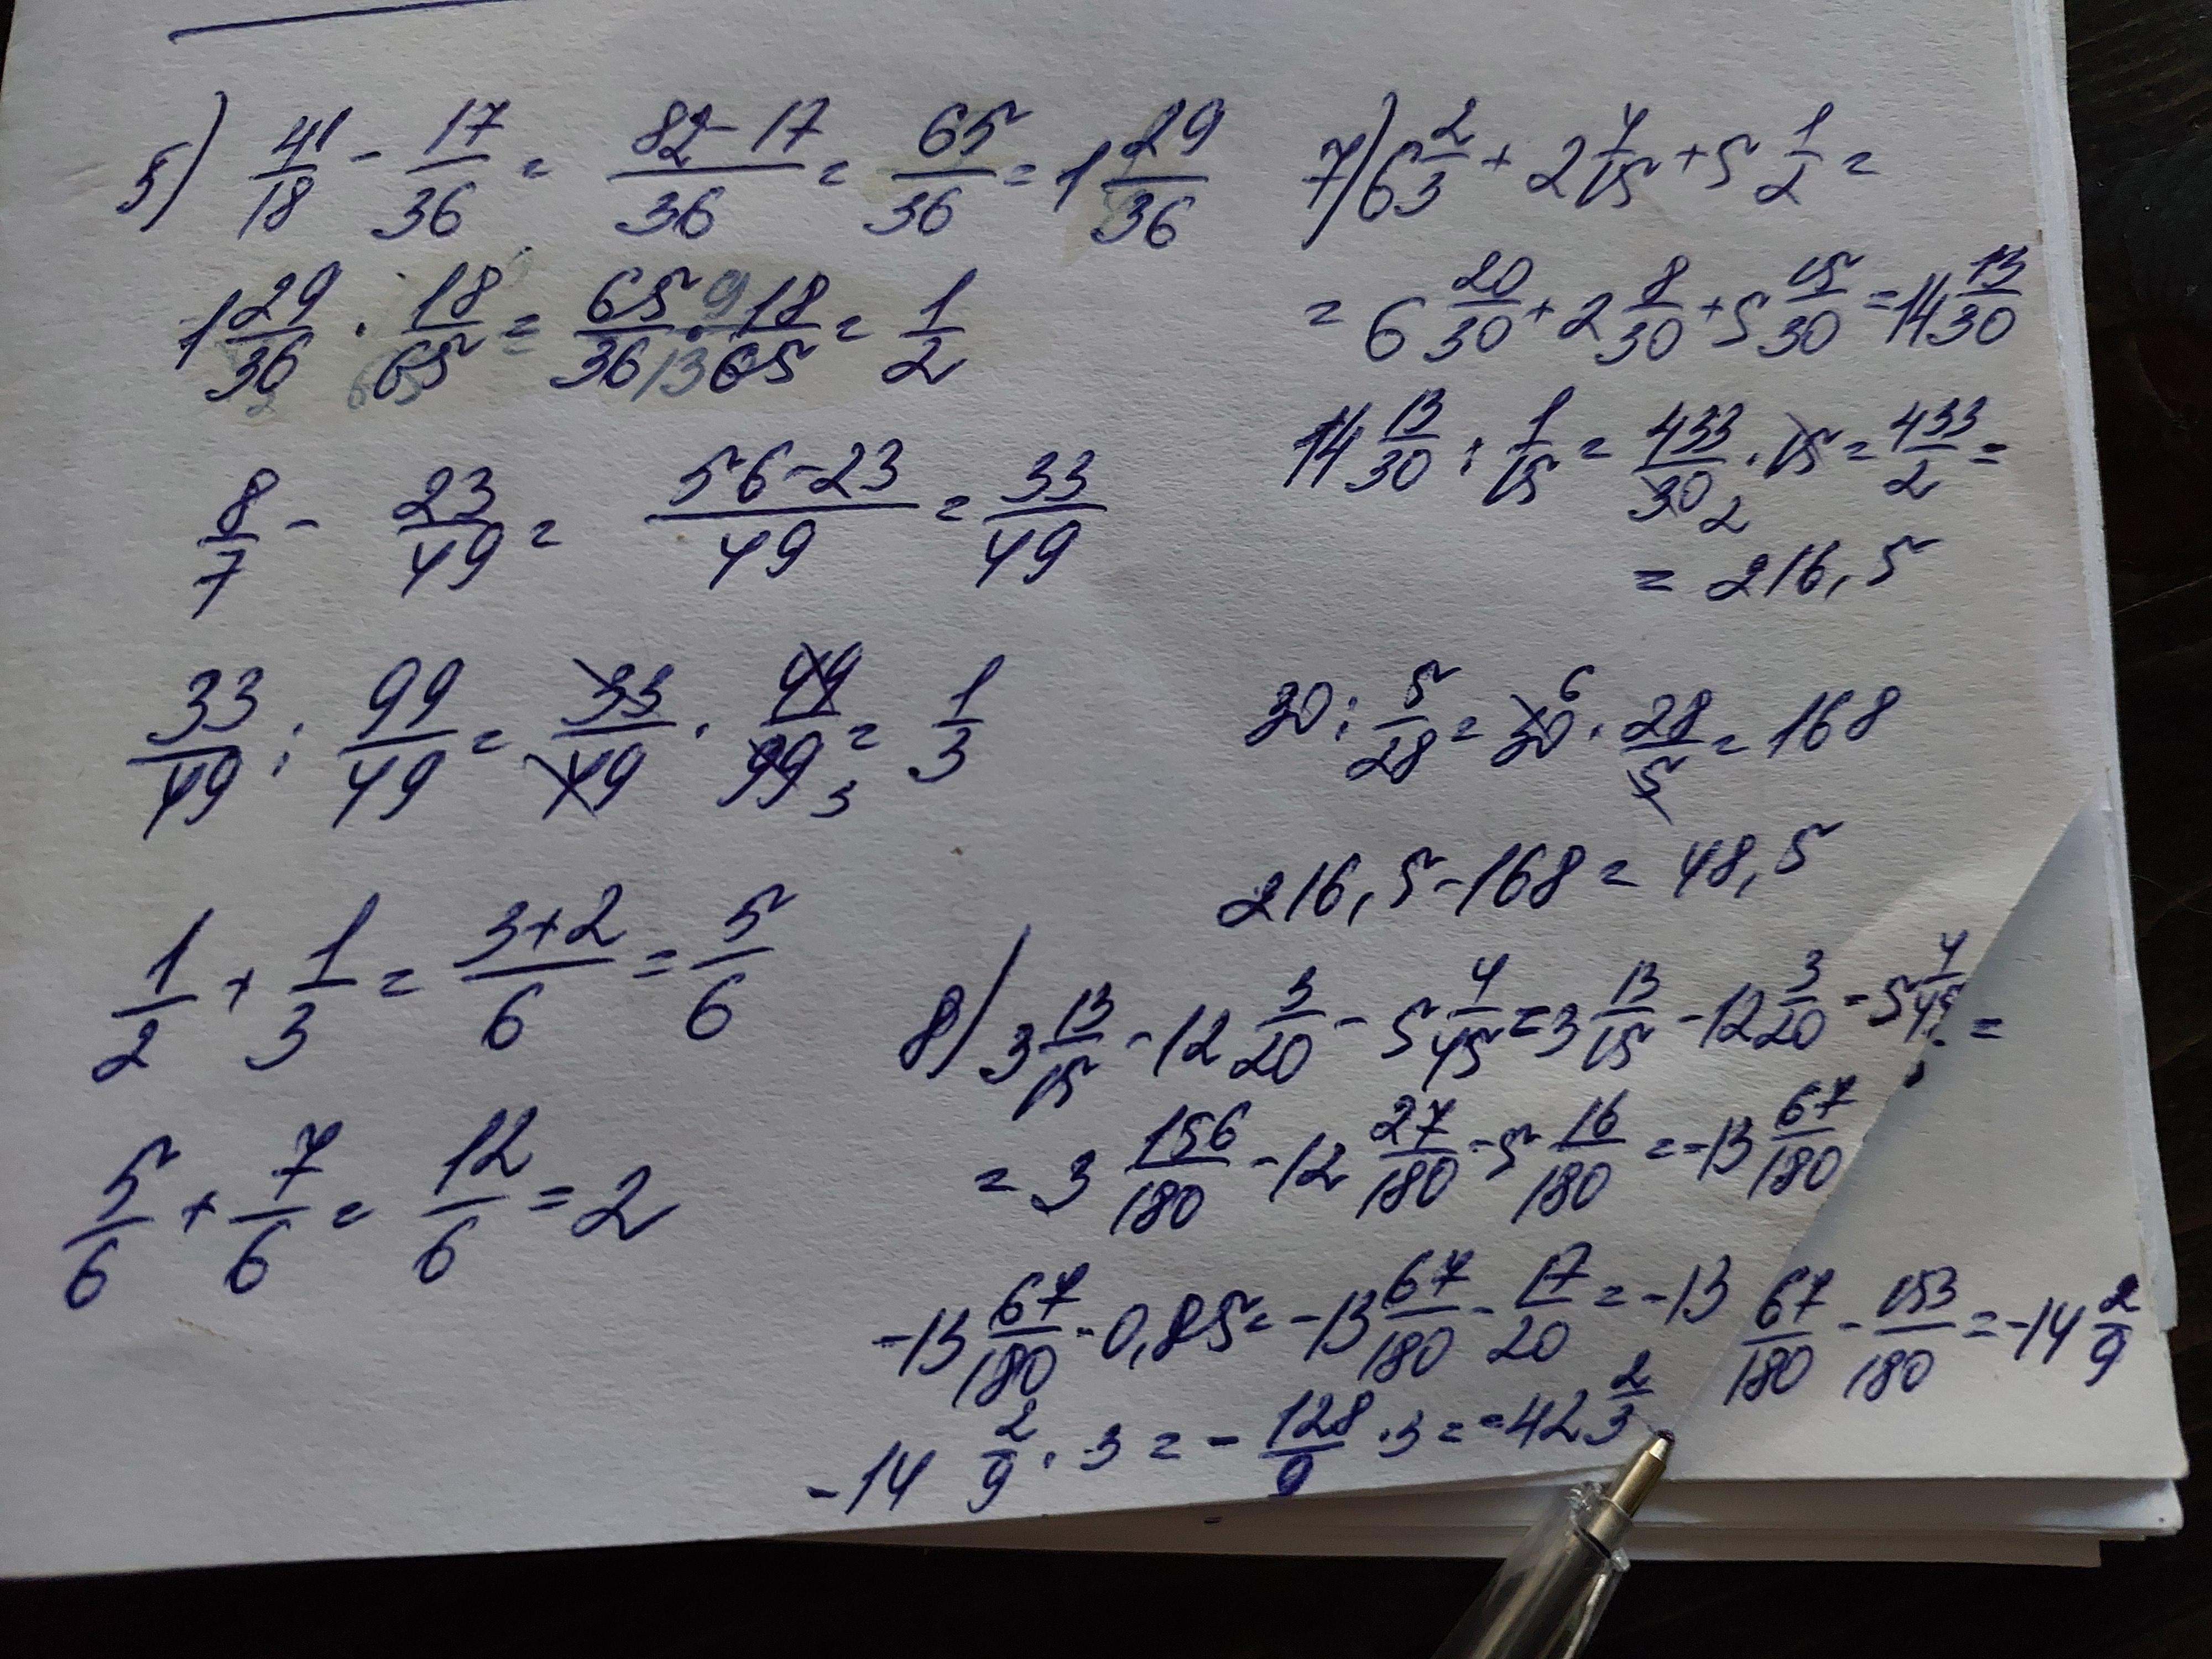 5) 41/18 - 17/36 = 82-17/36 = 65/36 = 1 29/36
1 29/36 · 18/65 = 65/36 · 18/65 = 1/2
8/7 - 23/49 = 56-23/49 = 33/49
33/49 : 99/49 = 33/49 · 49/99 3 = 1/3
1/2 + 1/3 = 3+2/6 = 5/6
5/6 + 7/6 = 12/6 = 2
7) 6 2/3 + 2 4/15 + 5 1/2 =
= 6 20/30 + 2 8/30 + 5 15/30 = 14 13/30
14 13/30 : 1/15 = 433/30 2 · 15 = 433/2 =
= 216,5
30 : 5/28 = 30 6 · 28/5 = 168
216,5 - 168 = 48,5
8) 3 13/15 - 12 3/20 - 5 4/45 = 3 13/15 - 12 3/20 - 5 4/45 =
= 3 156/180 - 12 27/180 - 5 16/180 = -13 67/180
-13 67/180 - 0,85 = -13 67/180 - 17/20 = -13 67/180 - 153/180 = -14 2/9
-14 2/9 · 3 = - 128/9 · 3 = -42 2/3